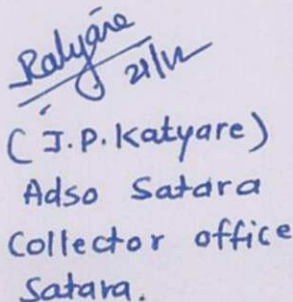 Katyare
21/12
(J.P. Katyare)
Adso Satara
Collector office
Satara.